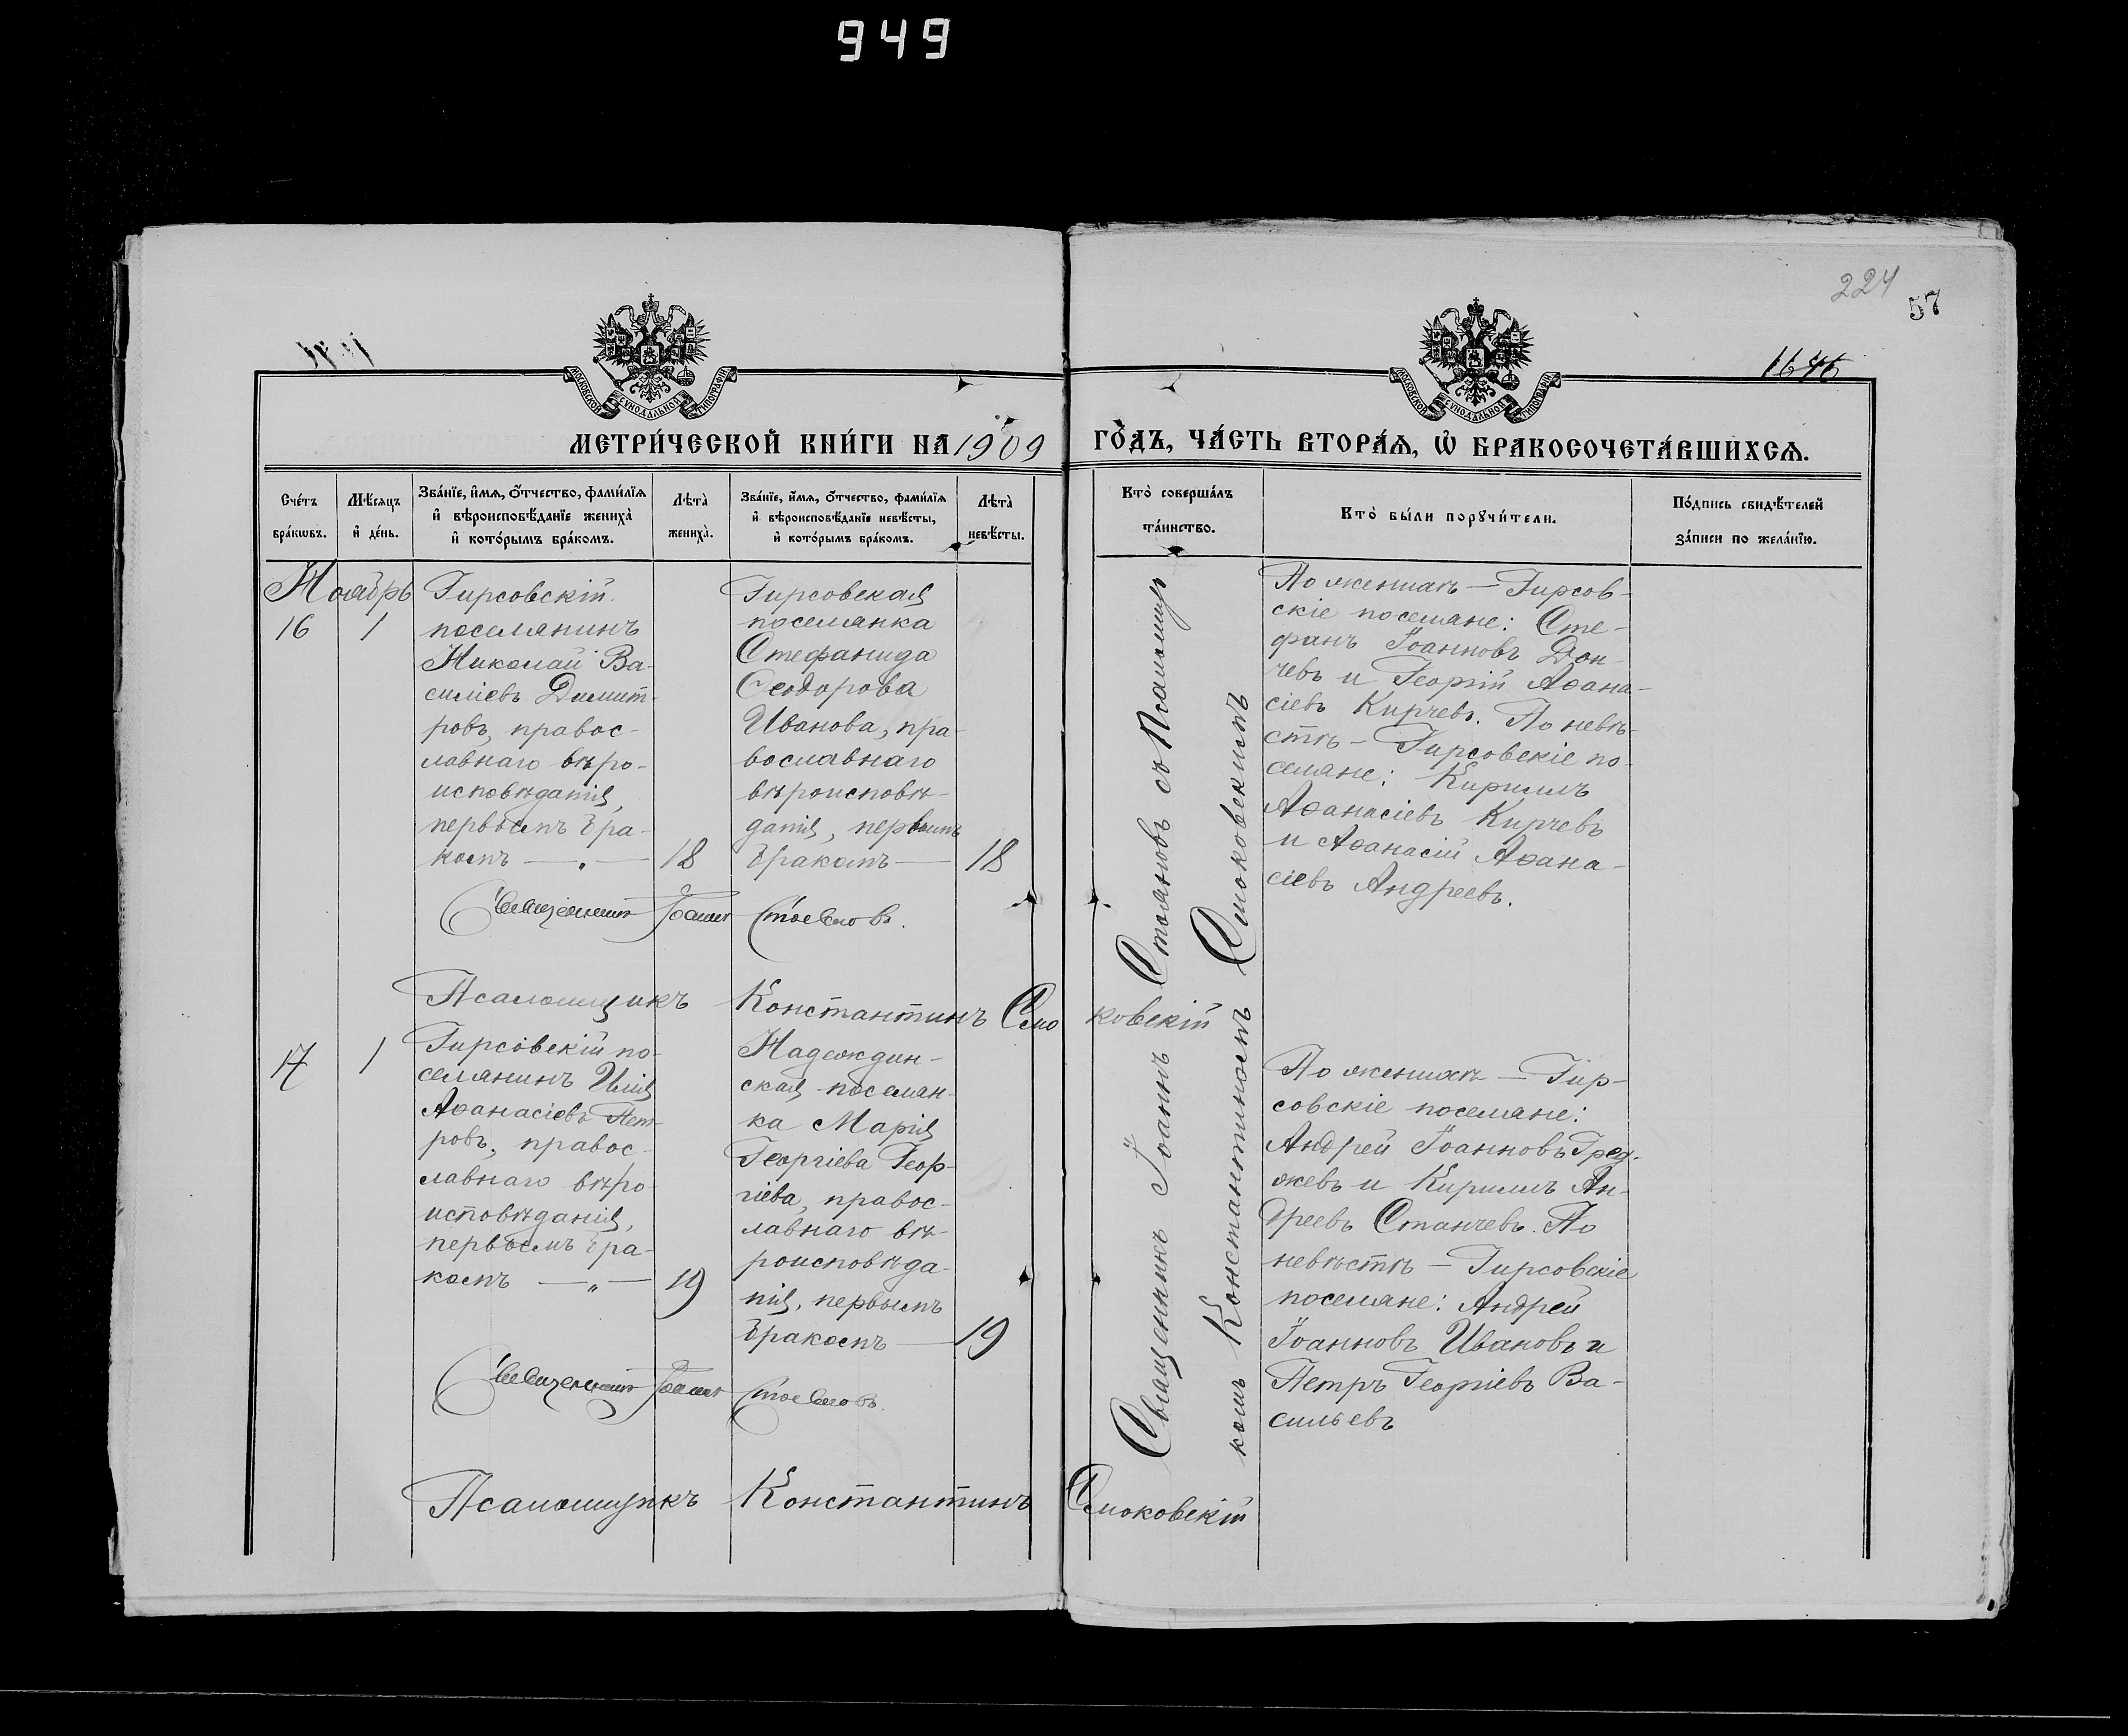 949
224
57
1646
МОСКОВСКОЙ СУНОДАЛЬНОЙ ТИПОГРАФІИ
МОСКОВСКОЙ СУНОДАЛЬНОЙ ТИПОГРАФІИ
МЕТРИ́ЧЕСКОЙ КНИ́ГИ НА 1909 ГО́ДЪ, ЧА́СТЬ ВТОРА́Ѧ, Ѡ҆ БРАКОСОЧЕТА́ВШИХСѦ.
Сче́тъ
бра́кѡвъ.
Мѣ́сѧцъ
и҆ де́нь.
Зва́нїе, и҆́мѧ, ѻ҆́тчество, фами́лїѧ
и҆ вѣроисповѣ́данїе жениха̀
и҆ кото́рымъ бра́комъ.
Лѣта̀
жениха̀.
Зва́нїе, и҆́мѧ, ѻ҆́тчество, фами́лїѧ
и҆ вѣроисповѣ́данїе невѣ́сты,
и҆ кото́рымъ бра́комъ.
Лѣта̀
невѣ́сты.
Кто̀ соверша́лъ
та́инство.
Кто̀ бы́ли порꙋчи́тели.
По́дпись свидѣ́телей
за́писи по жела́нїю.
Ноябрь
16
1
Гирсовскій
поселянинъ
Николай Ва-
силіевъ Димит-
ровъ, правос-
лавнаго вѣро-
исповѣданія,
первымъ бра-
комъ — „ —
18
Гирсовская
поселянка
Стефанида
Ѳеодорова
Иванова, пра-
вославнаго
вѣроисповѣ-
данія, первымъ
бракомъ —
18
Священникъ Іоаннъ Стояновъ съ Псаломщи
комъ Константиномъ Смоковскимъ
По женихѣ — Гирсов-
скіе поселяне: Сте-
фанъ Іоанновъ Дон-
чевъ и Георгій Аѳана-
сіевъ Кирчевъ. По невѣ-
стѣ — Гирсовскіе по-
селяне: Кириллъ
Аѳанасіевъ Кирчевъ
и Аѳанасій Аѳана-
сіевъ Андреевъ.
Священникъ Іоаннъ Стояновъ.
Псаломщикъ Константинъ Смоковскій
17
1
Гирсовскій по-
селянинъ Илія
Аѳанасіевъ Пет-
ровъ, правос-
лавнаго вѣро-
исповѣданія,
первымъ бра-
комъ — „ —
19
Надеждин-
ская поселян-
ка Марія
Георгіева Геор-
гіева, правос-
лавнаго вѣ-
роисповѣда-
нія, первымъ
бракомъ —
19
По женихѣ — Гир-
совскіе поселяне:
Андрей Іоанновъ Гред-
жевъ и Кириллъ Ан-
дреевъ Станчевъ. По
невѣстѣ — Гирсовскіе
поселяне: Андрей
Іоанновъ Ивановъ и
Петръ Георгіевъ Ва-
сильевъ
Священникъ Іоаннъ Стояновъ.
Псаломщикъ Константинъ Смоковскій